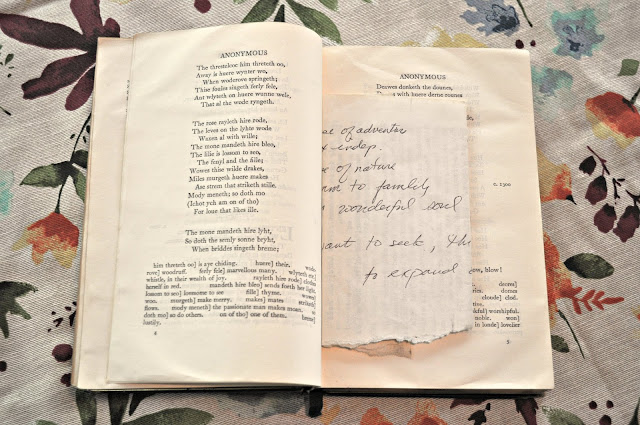 ANONYMOUS
The threstelcoc him threteth oo,
Away is huere wynter wo,
When woderove springeth;
Thise foules singeth ferly fele,
Ant wlyteth on huere wunne wele,
That al the wode ryngeth.
The rose rayleth hire rode,
The leves on the lyhte wode
Waxen al with wille;
The mone mandeth hire bleo,
The lilie is lossom to seo,
The fenyl and the fille;
Wowes thise wilde drakes,
Miles murgeth huere makes
Ase strem that striketh stille.
Mody meneth; so doth mo
(Ichot ych am on of tho)
For loue that likes ille.
The mone mandeth hire lyht,
So doth the semly sonne bryht,
When briddes singeth breme;
him threteth oo] is aye chiding. huere] their. wode-
rove] woodruff. ferly fele] marvellous many. wlyteth etc]
whistle, in their wealth of joy. rayleth hire rode] clothes
herself in red. mandeth hire bleo] sends forth her light.
lossom to seo] lovesome to see. fille] thyme. wowes]
woo. murgeth] make merry. makes] mates. striketh]
flows. mody meneth] the passionate man makes moan.
doth mo] so do others. on of tho] one of them. breme]
lustily.
ANONYMOUS
Deawes donketh the dounes,
with huere derne rounes
of adventur
indep.
of nature
to family
wonderful soul
to seek,
to expand
c. 1300
blow!
deores]
domes
cloude] clod.
wunhipful.
noble. won]
in londe] lovelier
5